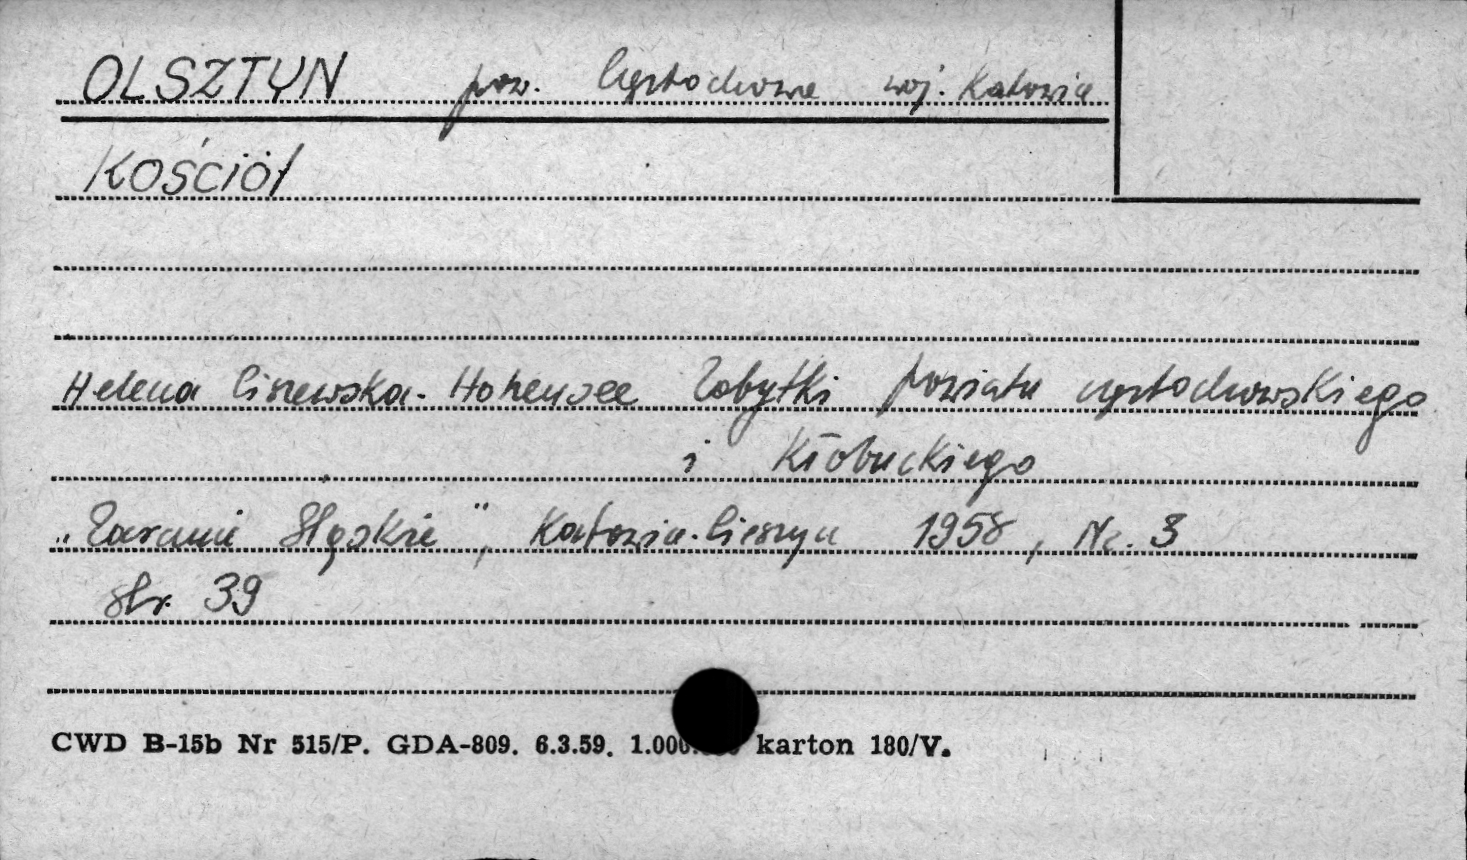 OLSZTYN pow. Częstochowa woj. Katowice
KOŚCIÓŁ
Helena Ciszewska-Hohensee Zabytki powiatu częstochowskiego
i Kłobuckiego
„Zaranie Śląskie", Katowice-Cieszyn 1958, Nr. 3
str. 39
CWD B-15b Nr 515/P. GDA-809. 6.3.59. karton 180/V.